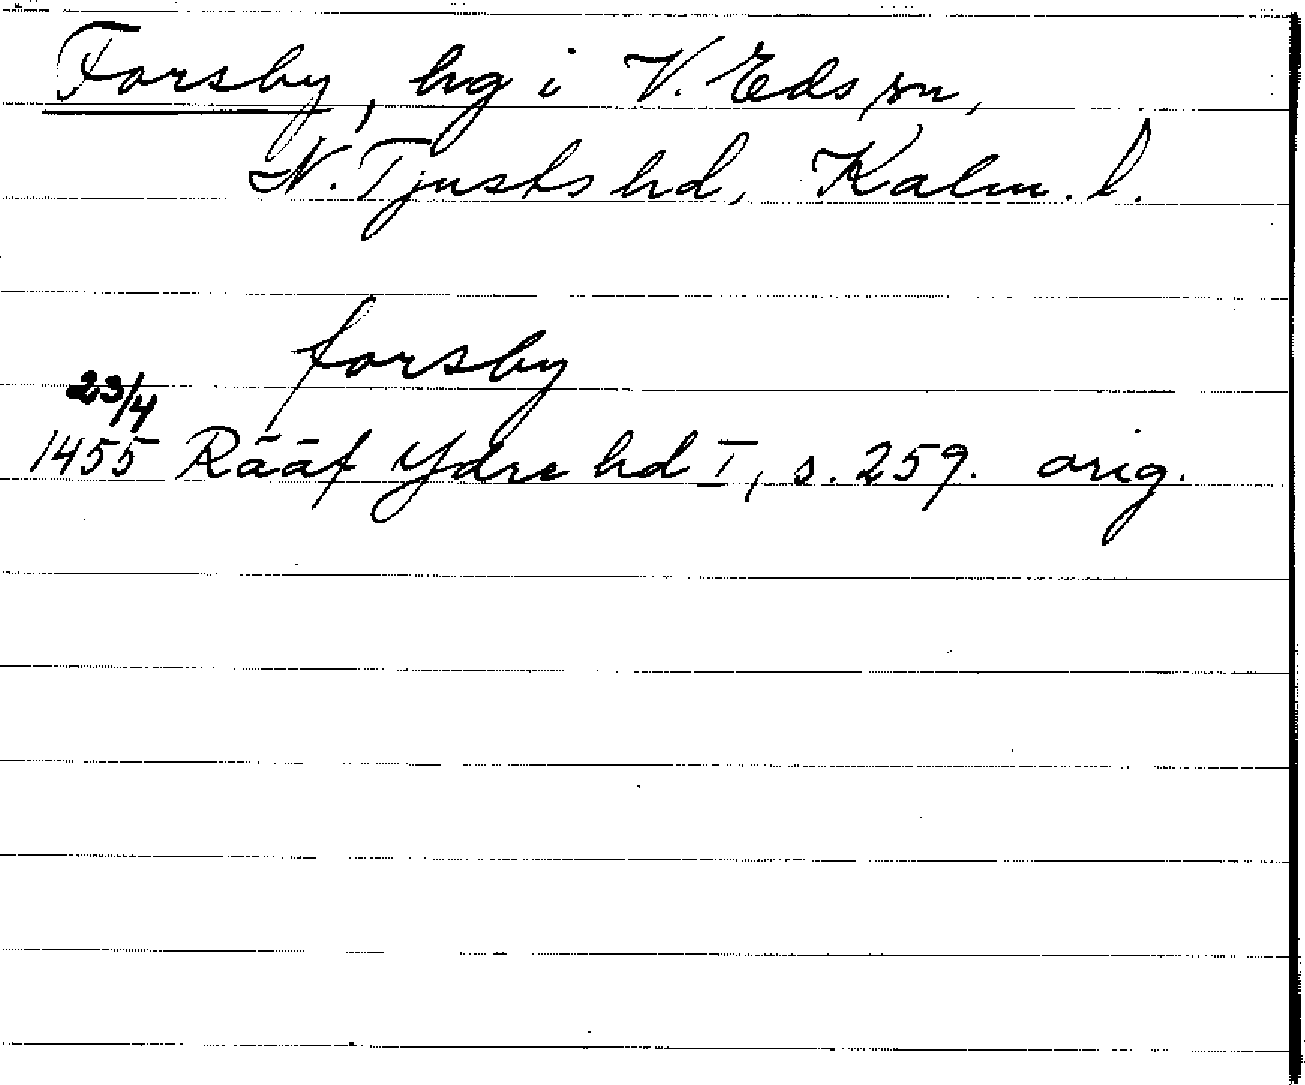 Forsby, hg i V. Eds sn,
N. Tjusts hd, Kalm. l.
forsby
23/4
1455 Rääf Ydre hd I, s. 259. orig.